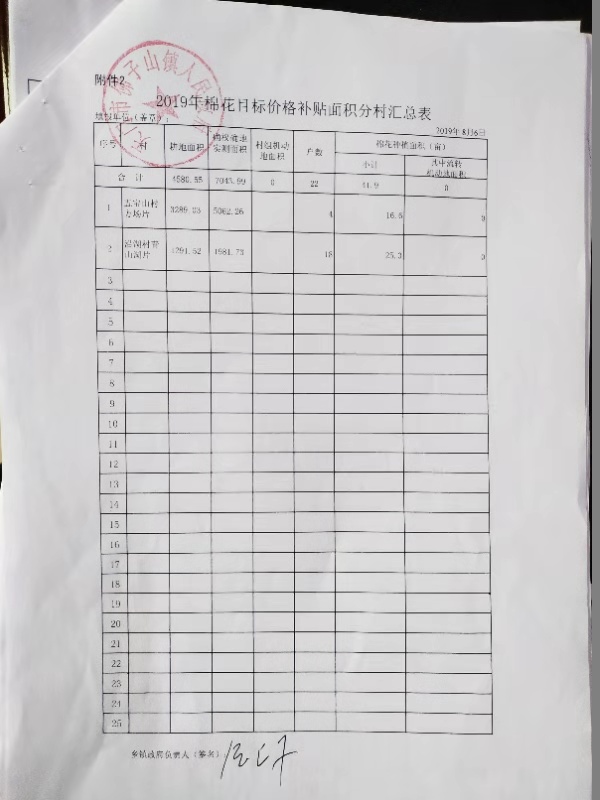 附件2
2019年棉花目标价格补贴面积分村汇总表
填报单位（盖章）：
2019年8月6日
序号 村 耕地面积 确权确地实测面积 村组机动地面积 户数 棉花种植面积（亩）
小计 其中流转机动地面积
合 计 4580.55 7043.99 0 22 41.9 0
1 3289.03 5062.26 4 16.6 0
2 1291.52 1981.73 18 25.3 0
3
4
5
6
7
8
9
10
11
12
13
14
15
16
17
18
19
20
21
22
23
24
25
乡镇政府负责人（签名）